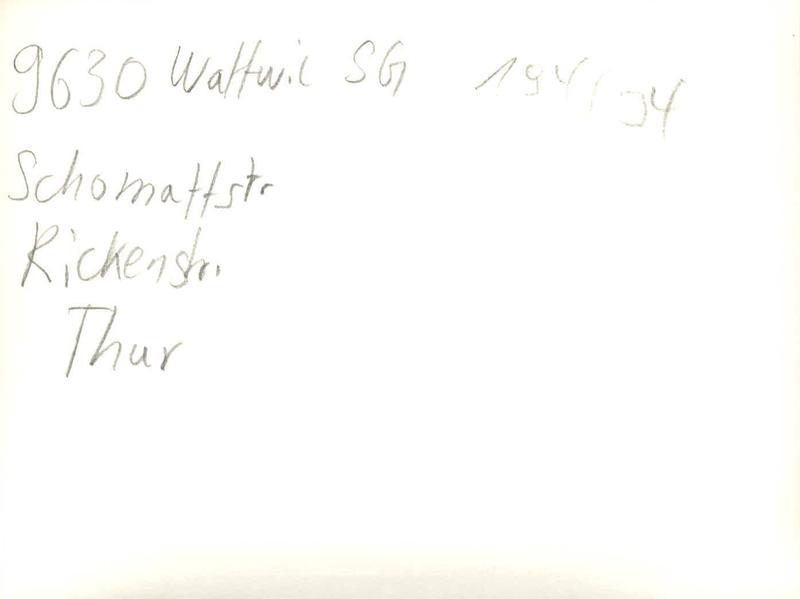 9630 Wattwil SG 194/94
Schomattstr.
Rickenstr.
Thur